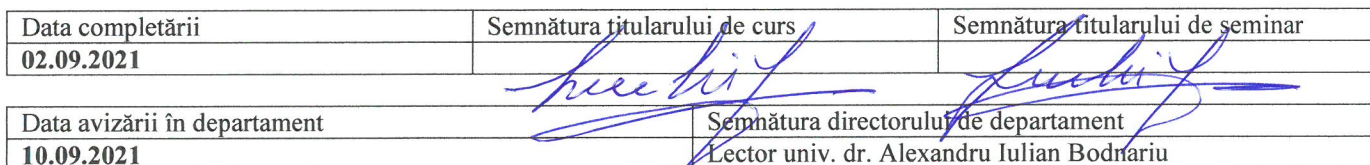 Data completării Semnătura titularului de curs Semnătura titularului de seminar
02.09.2021
Data avizării în departament Semnătura directorului de departament
10.09.2021 Lector univ. dr. Alexandru Iulian Bodnariu